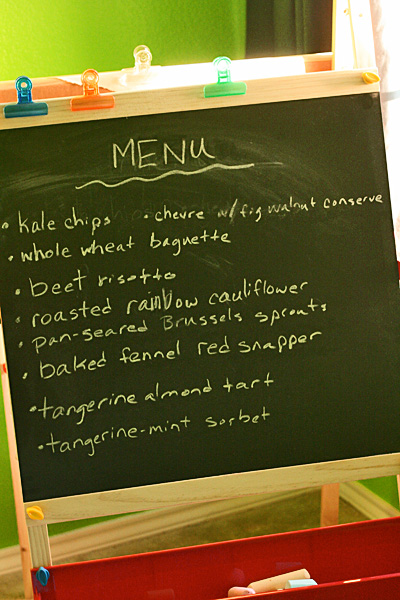 MENU
• kale chips • chevre w/ fig walnut conserve
• whole wheat baguette
• beet risotto
• roasted rainbow cauliflower
• pan-seared Brussels sprouts
• baked fennel red snapper
• tangerine almond tart
• tangerine-mint sorbet